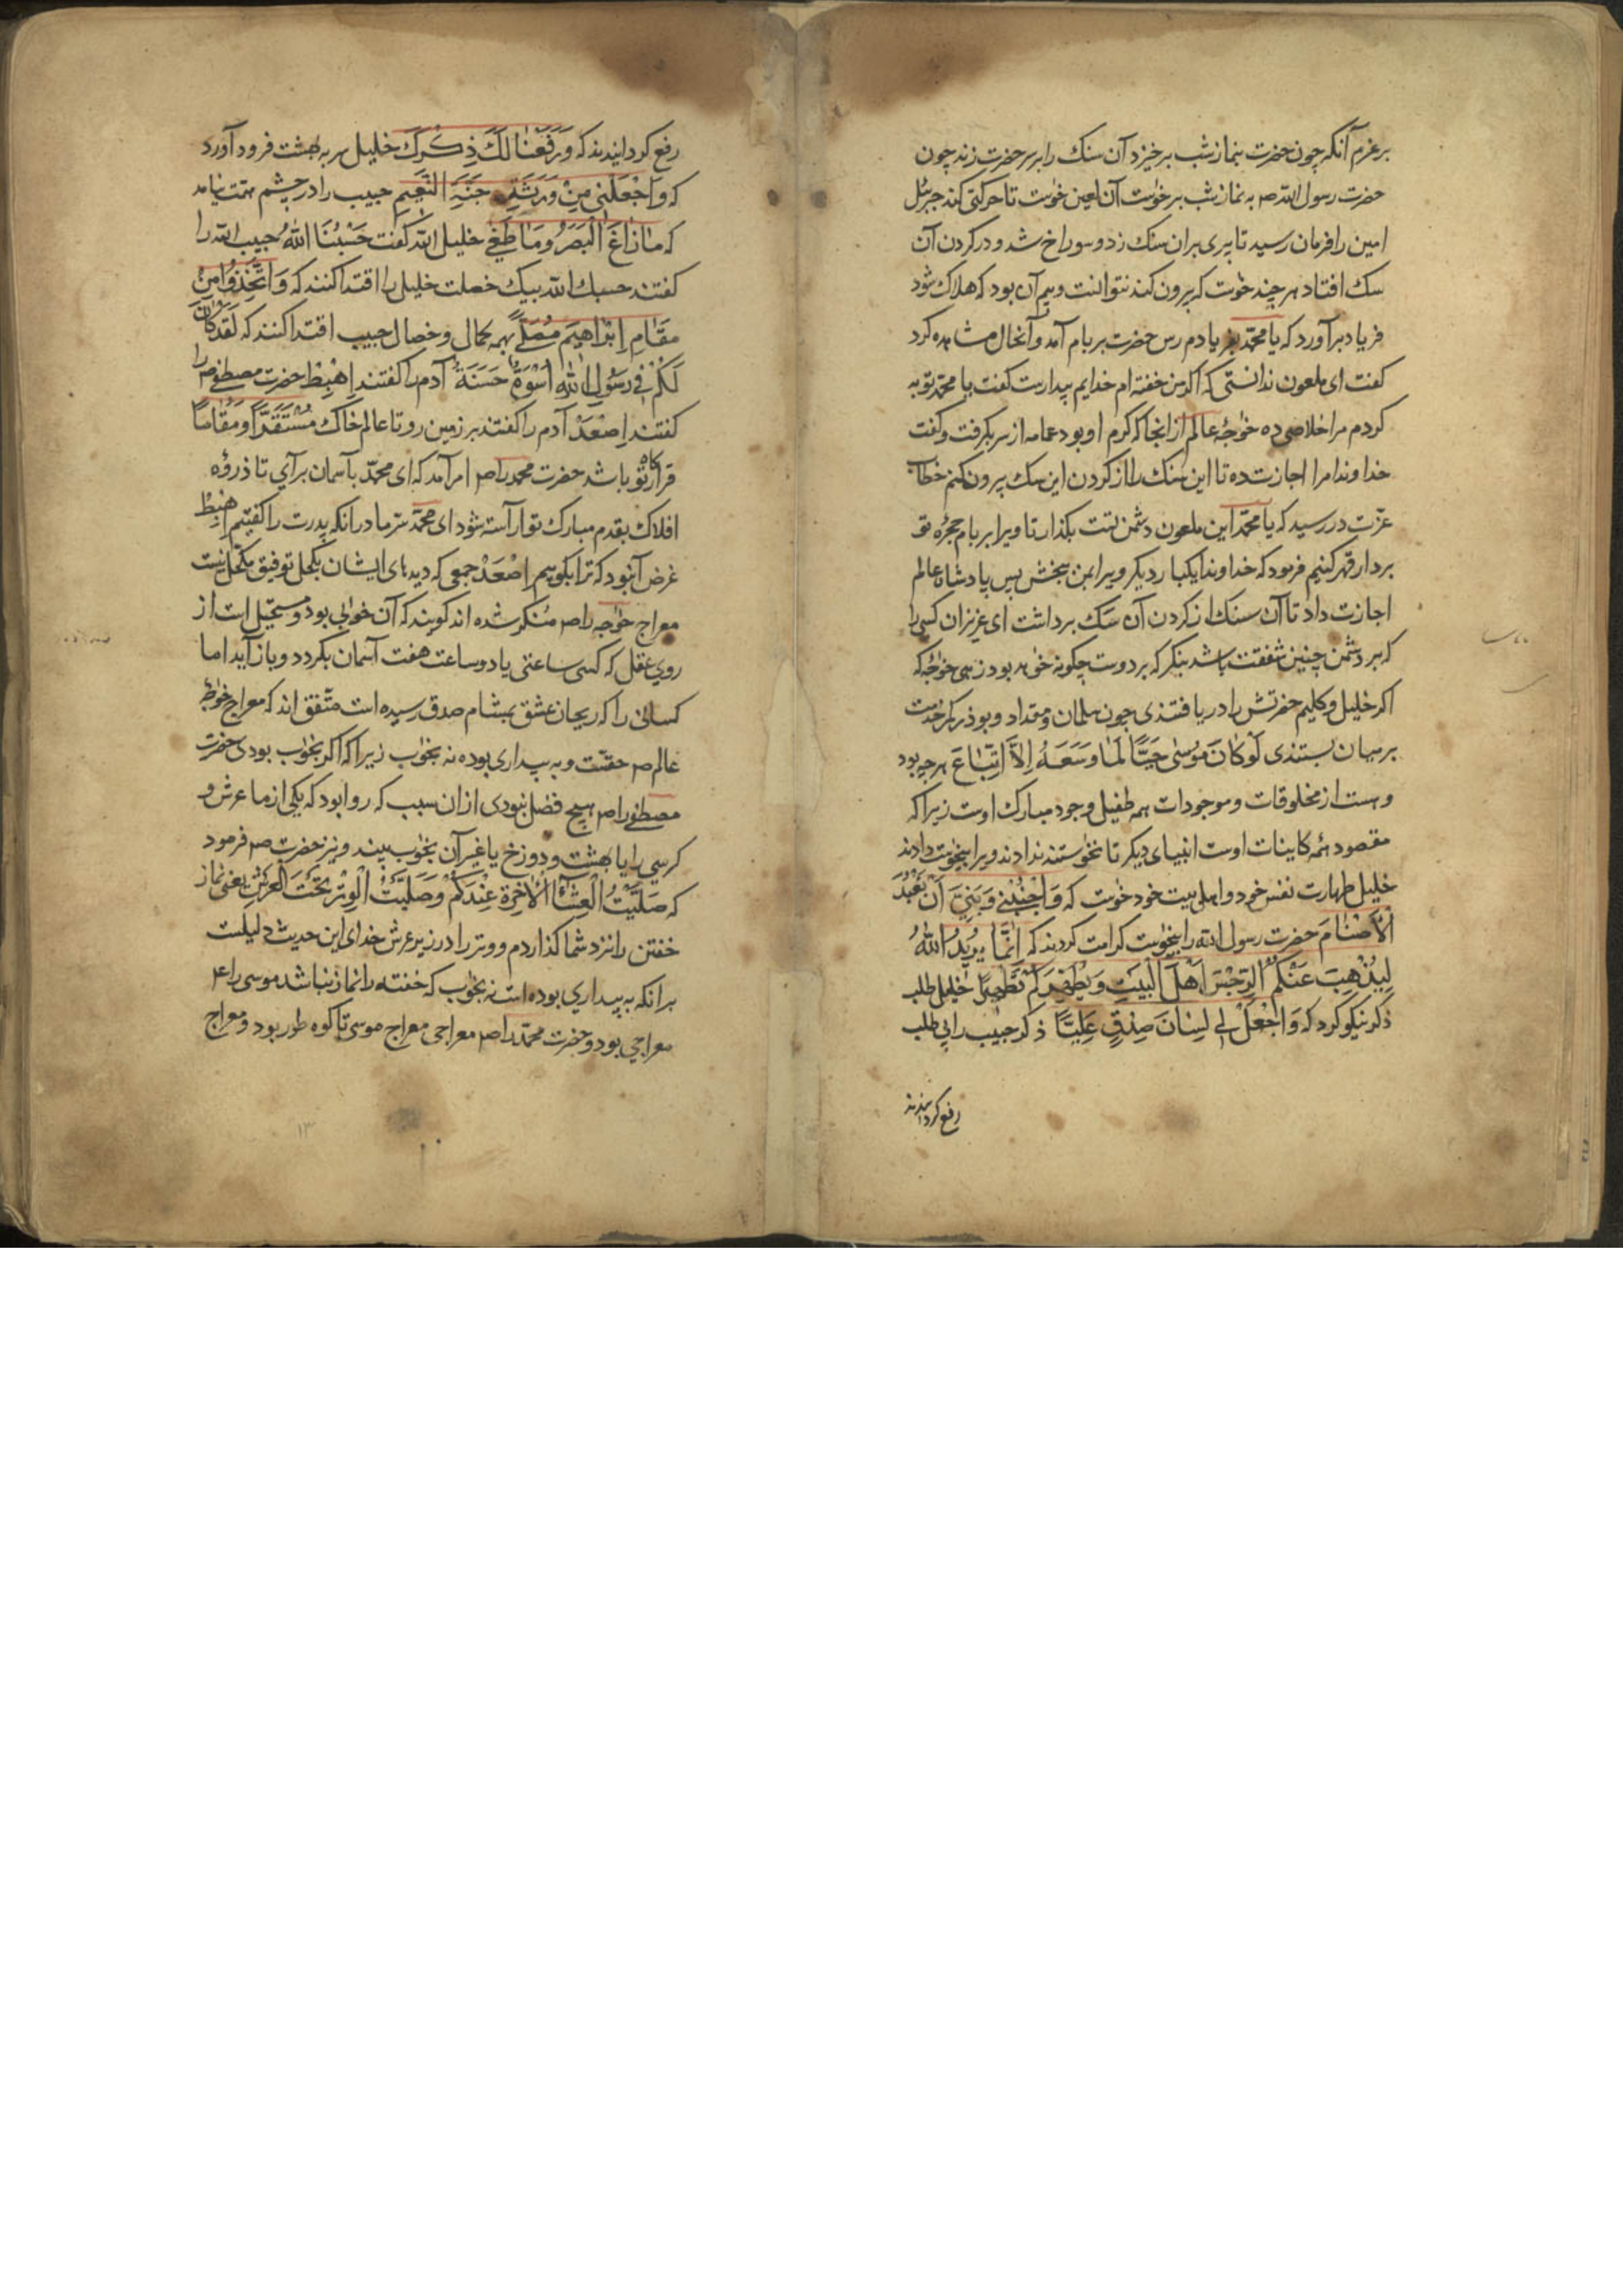 بر عزم آنکه چون حضرت بنماز شب برخیزد آن سنک را بر سر حضرت زند چون
حضرت رسول الله صم به نماز شب برخواست آن لعین خواست تا حرکتی کند جبرئیل
امین را فرمان رسید تا پری بران سنک زد و سوراخ شد و در کردن آن
سک افتاد هر چند خواست که بیرون کند نتوانست وبیم آن بود که هلاک شود
فریاد برآورد که یا محمد بفریادم رس حضرت بر بام آمد و آنحال مشاهده کرد
کفت ای ملعون ندانستی که اکر من خفته ام خدایم بیدارست کفت یا محمد توبه
کردم مرا خلاصی ده خواجهٔ عالم از انجا که کرم او بود عمامه از سر بکرفت وکفت
خداوندا مرا اجازت ده تا این سنک را از کردن این سک بیرون کنم خطاب
عزّت در رسید که یا محمّد این ملعون دشمن تست بکذار تا ویرا بر بام حجرهٔ تو
بر دار قهر کنیم فرمود که خداوندا یکبار دیکر ویرا بمن ببخش پس پادشاه عالم
اجازت داد تا آن سنک از کردن آن سک برداشت ای عزیزان کسی را
که بر دشمن چنین شفقت باشد بنکر که بر دوست چکونه خواهد بود زهی خواجهٔ که
اکر خلیل وکلیم حضرتش را دریافتندی چون سلمان ومقداد وبوذر کمر خدمت
بر میان بستندی لَوْ کَانَ مُوسٰی حَیًّا لَمَا وَسَعَهُ اِلاَّ اتِّبَاعَ هرچه بود
وهست از مخلوقات وموجودات همه طفیل وجود مبارک اوست زیرا که
مقصود همهٔ کاینات اوست انبیای دیکر تا نخواستند ندادند ویرا بیخواست دادند
خلیل طهارت نفس خود واهل بیت خود خواست که وَاجْنُبْنِی وَبَنِیَّ اَنْ نَعْبُدَ
الْاَصْنَامَ حضرت رسول الله را بیخواست کرامت کردند که اِنَّمَا یُرِیدُ اللهُ
لِیُذْهِبَ عَنْکُمُ الرِّجْسَ اَهْلَ الْبَیْتِ وَیُطَهِّرَکُمْ تَطْهِیرًا خلیل طلب
ذکر نیکو کرد که وَاجْعَلْ لِی لِسَانَ صِدْقٍ عَلِیًّا ذکر حبیب را بی طلب
رفع کردانیدند
رفع کردانیدند که وَرَفَعْنَا لَکَ ذِکْرَکَ خلیل سر به بهشت فرود آورد
که وَاجْعَلْنِی مِنْ وَرَثَةِ جَنَّةِ النَّعِیمِ حبیب را در چشم همت نیامد
که مَا زَاغَ الْبَصَرُ وَمَا طَغٰی خلیل الله کفت حَسْبُنَا اللهُ حبیب الله را
کفتند حسبک الله بیک خصلت خلیل را اقتدا کنند که وَاتَّخِذُوا مِنْ
مَقَامِ اِبْرَاهِیمَ مُصَلًّی بهمه کمال وخصال حبیب اقتدا کنند که لَقَدْ کَانَ
لَکُمْ فِی رَسُولِ اللهِ اُسْوَةٌ حَسَنَةٌ آدم را کفتند اِهْبِطْ حضرت مصطفی صم را
کفتند اِصْعَدْ آدم را کفتند بر زمین رو تا عالم خاک مُسْتَقَرًّا وَمُقَامًا
قرارکاه تو باشد حضرت محمد را صم امر آمد که ای محمّد بآسمان برآی تا ذروهٔ
افلاک بقدم مبارک تو آراسته شود ای محمّد سرّ ما در انکه پدرت را کفتیم اِهْبِطْ
غرض آنبود که ترا بکوییم اِصْعَدْ جمعی که دیدهای ایشان بکحل توفیق مکحّل نیست
معراج خواجه را صم مُنکر شده اند کویند که آن خوابی بود ومستحیل است از
روی عقل که کسی ساعتی یا دو ساعت هفت آسمان بکردد وباز آید اما
کسانی را که ریحان عشق بمشام صدق رسیده است متّفق اند که معراج خواجهٔ
عالم صم حقست وبه بیداری بوده نه بخواب زیرا که اکر بخواب بودی حضرت
مصطفی را صم هیچ فضل نبودی از ان سبب که روا بود که یکی از ما عرش و
کرسی را یا بهشت ودوزخ یا غیر آن بخواب بیند ونیز حضرت صم فرمود
که صَلَّیْتُ الْعِشَاءَ الْاٰخِرَةَ عِنْدَکُمْ وَصَلَّیْتُ الْوِتْرَ تَحْتَ الْعَرْشِ یعنی نماز
خفتن را نزد شما کذاردم ووتر را در زیر عرش خدای این حدیث دلیلست
بر انکه به بیداری بوده است نه بخواب که خفته را نماز نباشد موسی را ع
معراجی بود وحضرت محمّد را صم معراجی معراج موسی تا کوه طور بود ومعراج
١٣